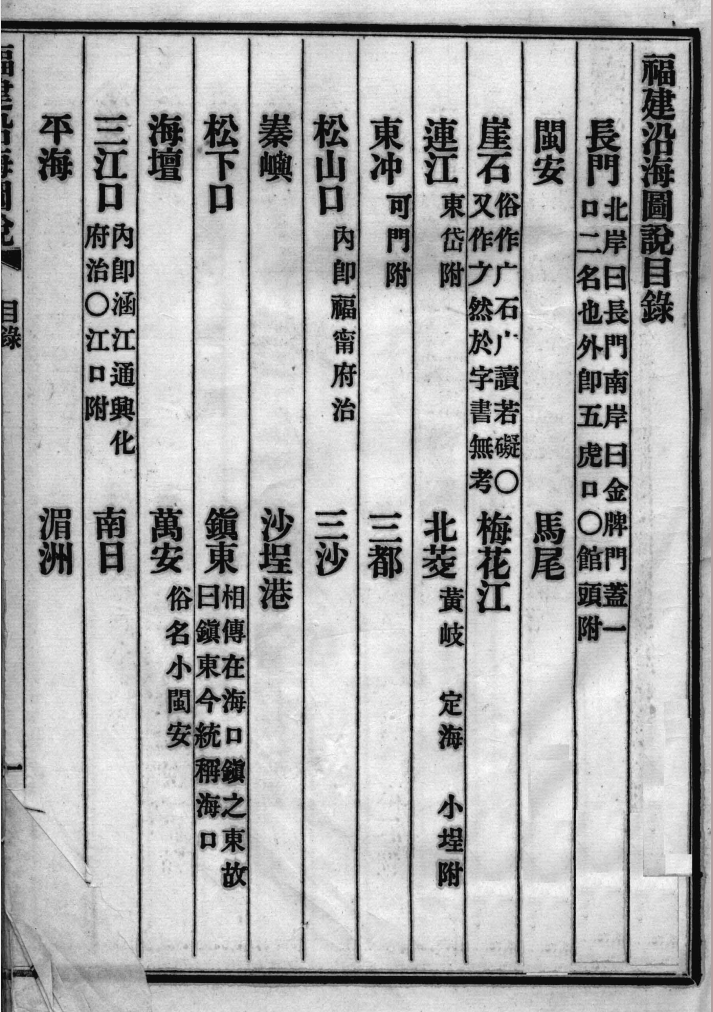 福建沿海圖說目錄
長門 北岸曰長門南岸曰金牌門蓋一
口二名也外卽五虎口〇館頭附
閩安 馬尾
崖石 俗作广石广讀若礙〇
又作𠂆然於字書無考 梅花江
連江 東岱附 北茭 黃岐 定海 小埕附
東冲 可門附 三都
松山口 內卽福甯府治 三沙
秦嶼 沙埕港
松下口 鎭東 相傳在海口鎭之東故
曰鎭東今統稱海口
海壇 萬安 俗名小閩安
三江口 內卽涵江通興化
府治〇江口附 南日
平海 湄洲
福建沿海圖說 目錄 一